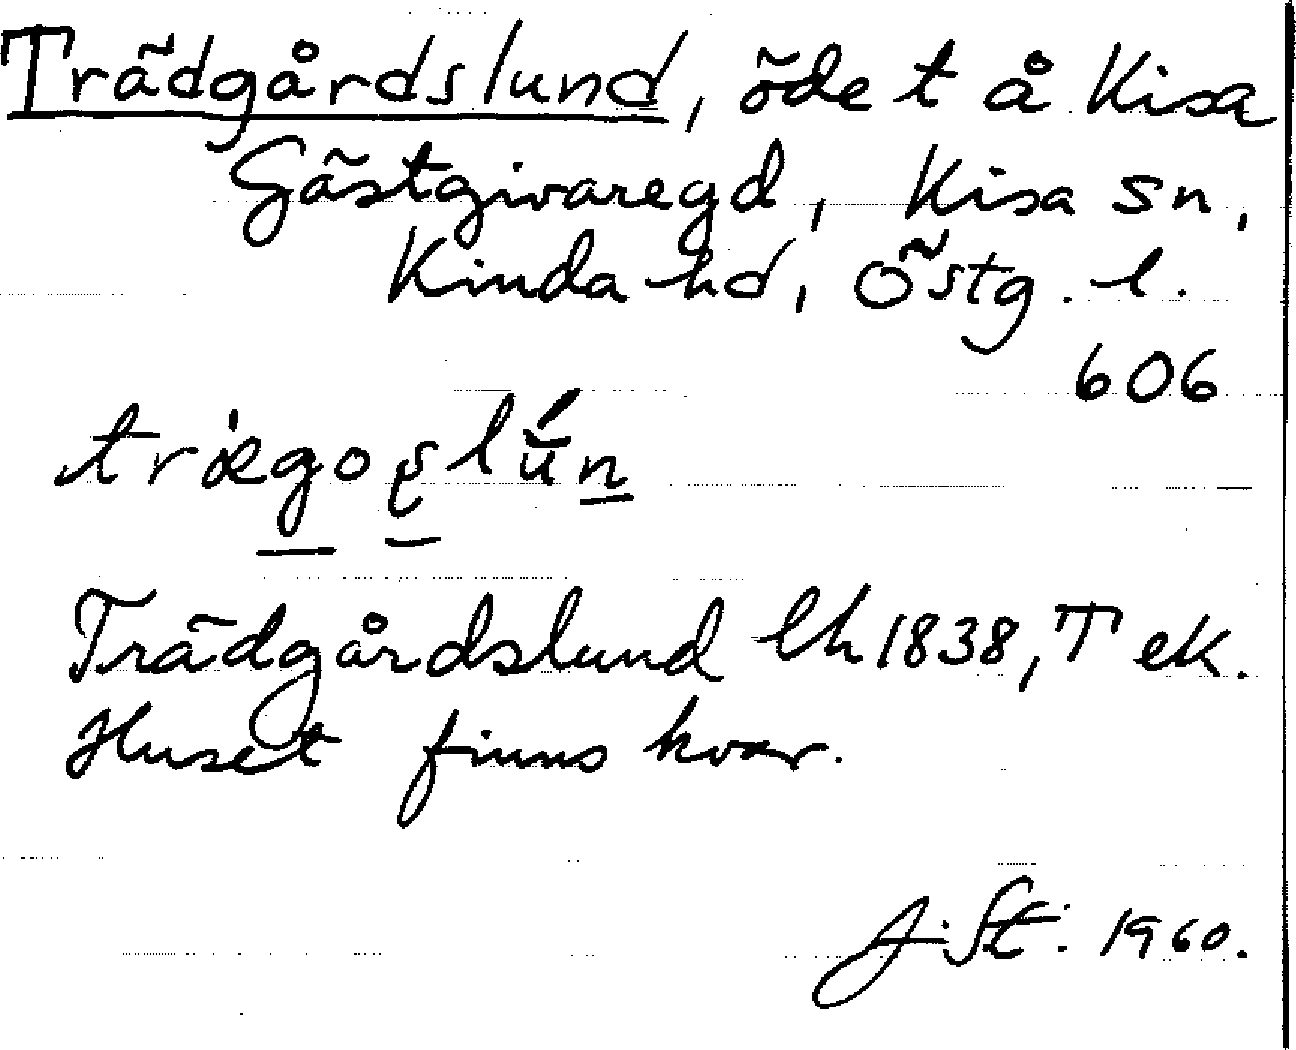 Trädgårdslund, öde t å Kisa
Gästgivaregd, Kisa sn,
Kinda hd, Östg. l.
606
trægoslún
Trädgårdslund lh 1838, T ek.
Huset finns kvar.
J. St. 1960.